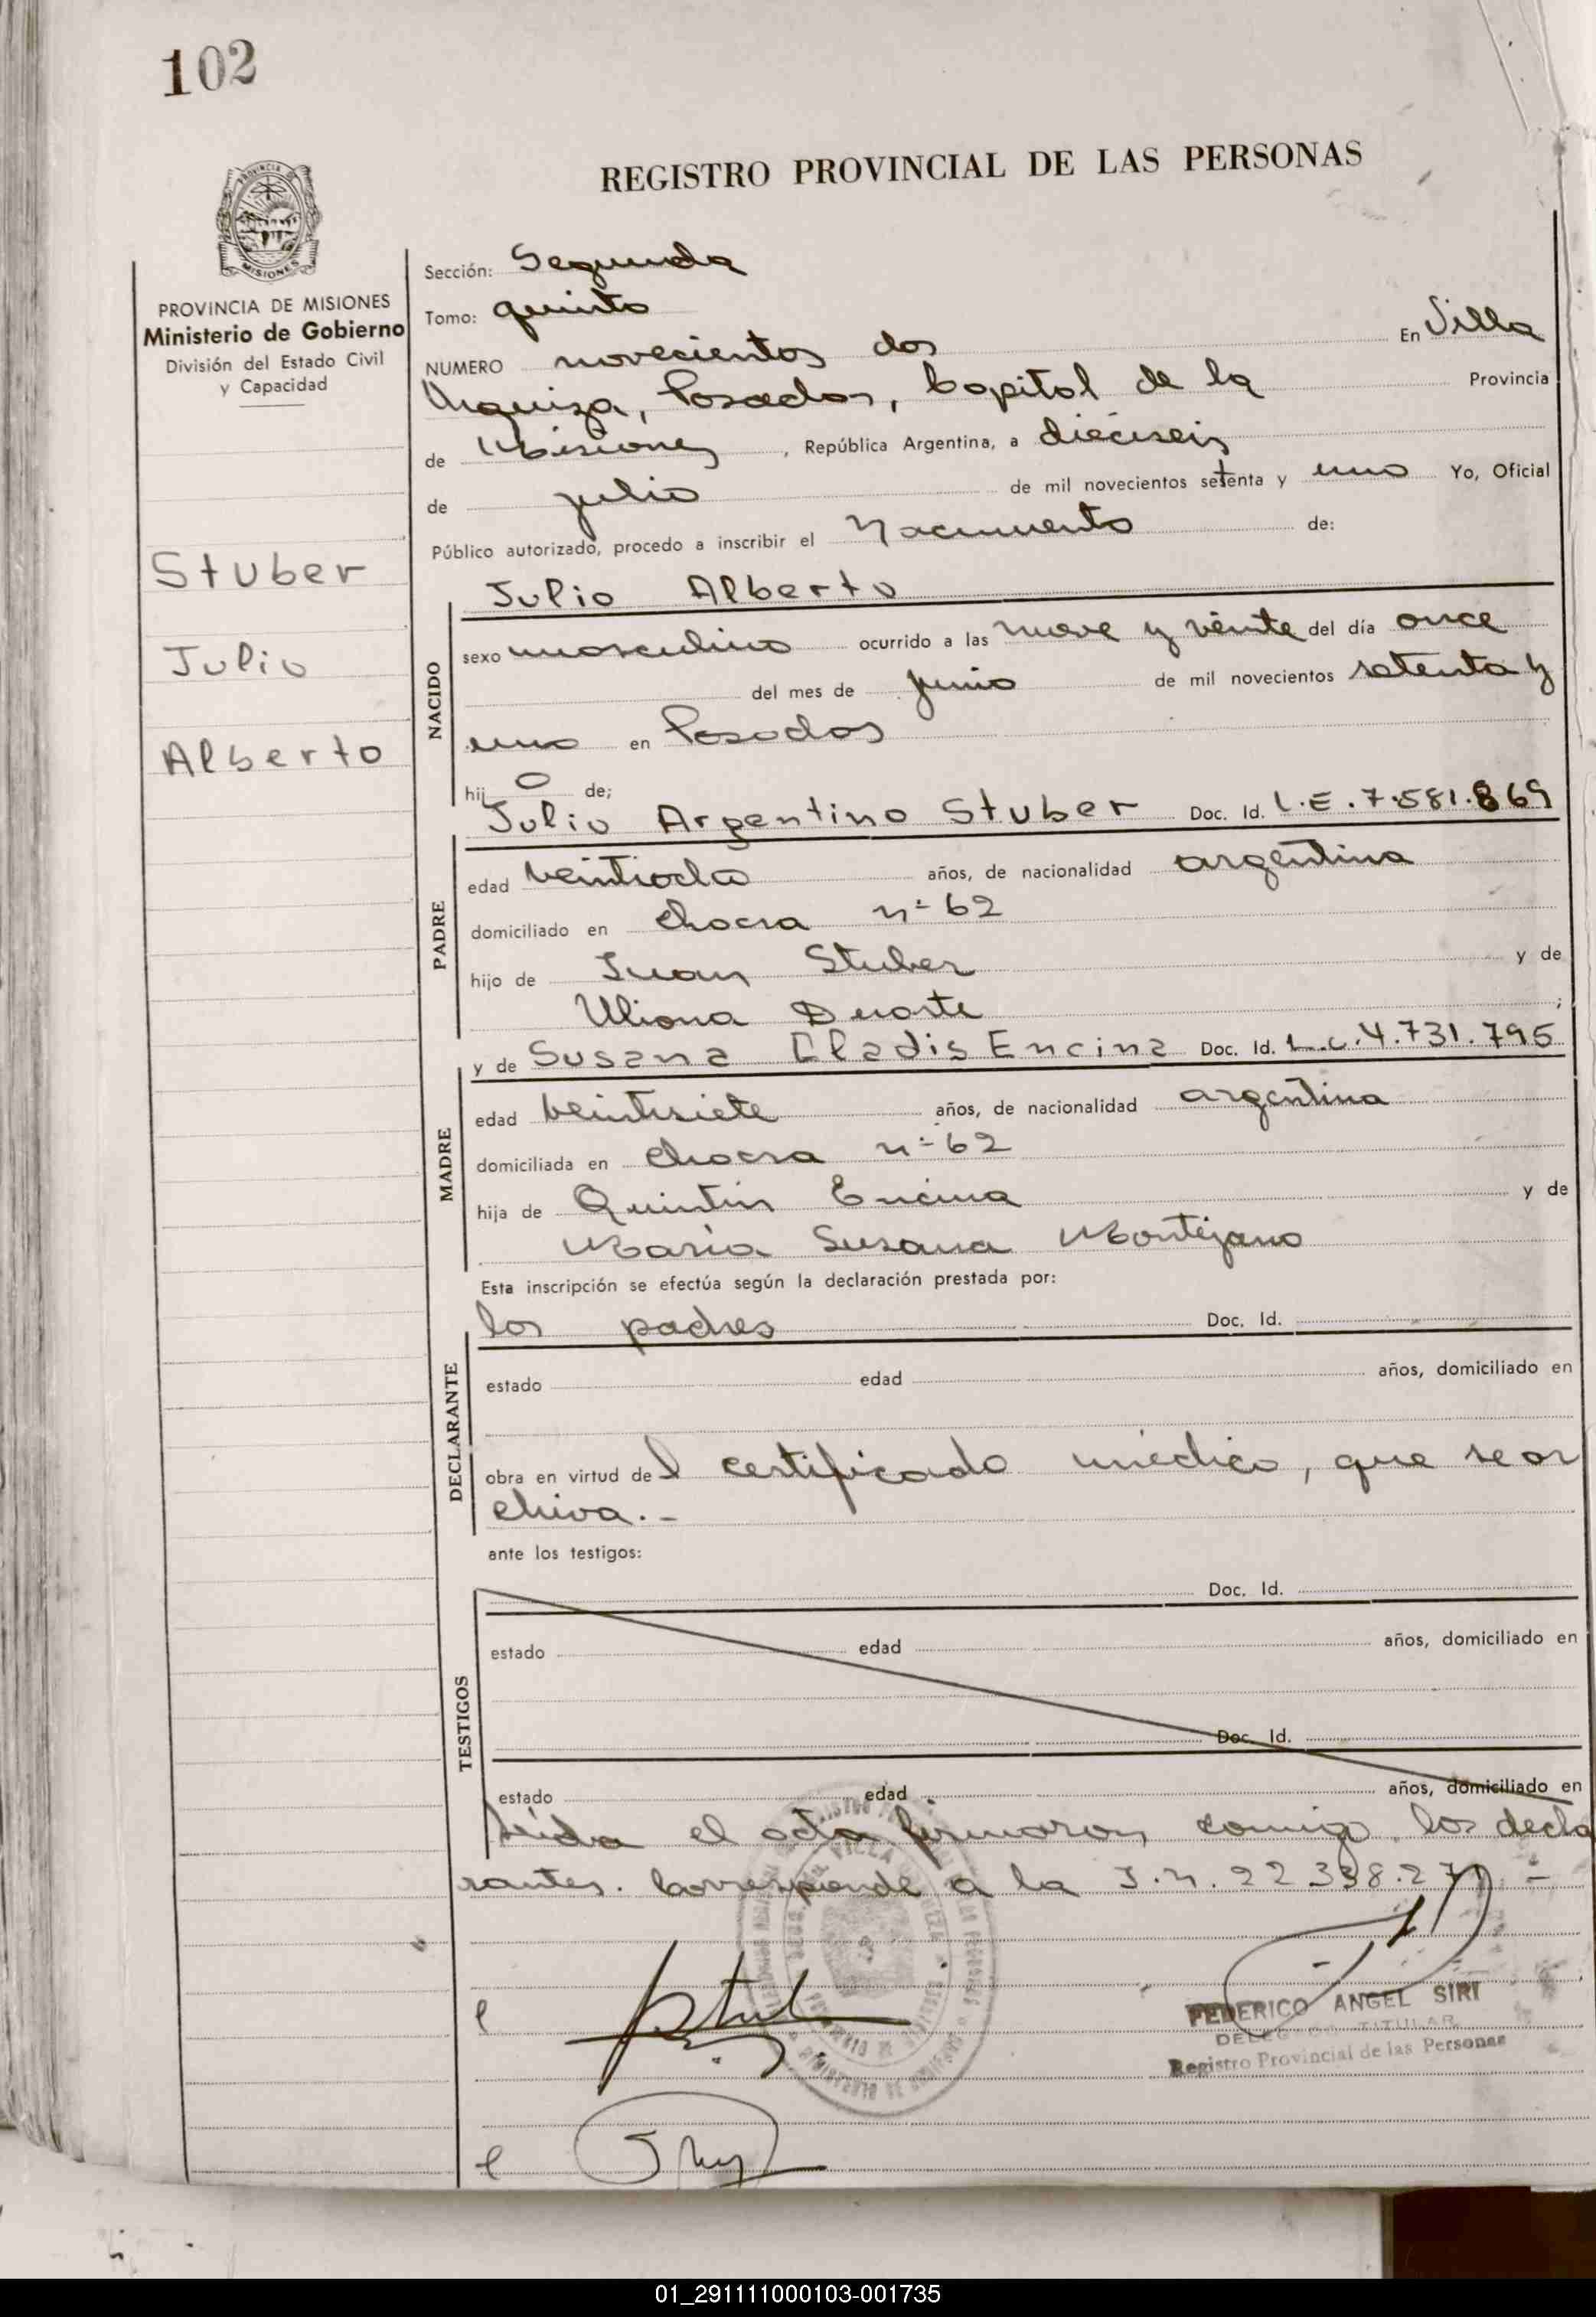 102
REGISTRO PROVINCIAL DE LAS PERSONAS
PROVINCIA DE MISIONES
Ministerio de Gobierno
División del Estado Civil
y Capacidad
Stuber
Julio
Alberto
Sección: Segunda
Tomo: quinto
NUMERO novecientos dos En Villa
Urquiza, Posadas, Capital de la Provincia
de Misiones, República Argentina, a dieciseis
de julio de mil novecientos setenta y uno Yo, Oficial
Público autorizado, procedo a inscribir el Nacimiento de:
Julio Alberto
NACIDO
sexo masculino ocurrido a las nueve y veinte del día once
del mes de junio de mil novecientos setenta y
uno en Posadas
hij o de;
Julio Argentino Stuber Doc. Id. L.E. 7.581.869
PADRE
edad veintiocho años, de nacionalidad argentina
domiciliado en chacra nº 62
hijo de Juan Stuber y de
Duarte ;
y de Susana Gladis Encina Doc. Id. L.C. 4.731.795
MADRE
edad veintisiete años, de nacionalidad argentina
domiciliada en chacra nº 62
hija de Quintin Encina y de
Maria Susana Montejano
Esta inscripción se efectúa según la declaración prestada por:
los padres Doc. Id.
DECLARANTE
estado edad años, domiciliado en
obra en virtud del certificado médico, que se ar
chiva.-
ante los testigos:
Doc. Id.
TESTIGOS
estado edad años, domiciliado en
Doc. Id.
estado edad años, domiciliado en
Leida el acta firmaron conmigo los decla
rantes. Corresponde a la I.N.
FEDERICO ANGEL SIRI
DELEGADO TITULAR
Registro Provincial de las Personas
01_291111000103-001735